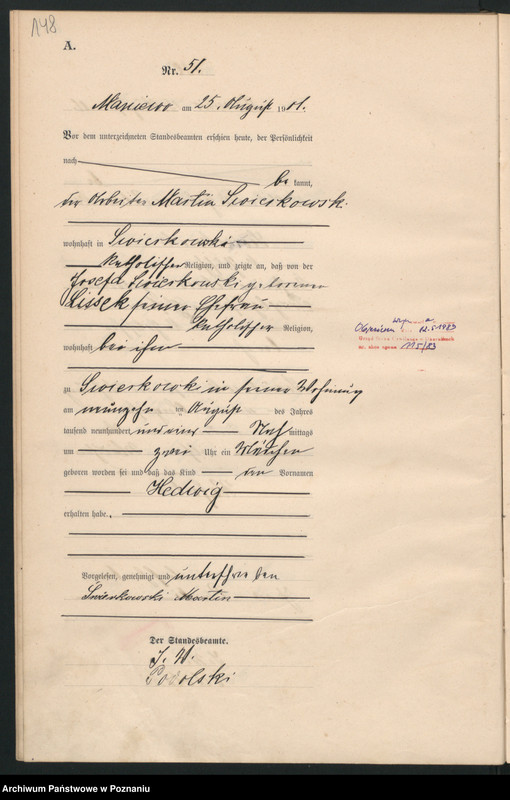 148
A.
Nr. 51.
am 25. August 1901.
Vor dem unterzeichneten Standesbeamten erschien heute, der Persönlichkeit
nach be kannt,
der Arbeiter Martin Swierkowski
wohnhaft in Swierkowki
katholischer Religion, und zeigte an, daß von der
Josefa Swierkowski geborenen
Lissek seiner Ehefrau
katholischer Religion,
wohnhaft bei ihm
zu Swierkowki in seiner Wohnung
am neunzehn ten August des Jahres
tausend neunhundert und eins Nach mittags
um zwei Uhr ein Mädchen
geboren worden sei und daß das Kind den Vornamen
Hedwig
erhalten habe.
Vorgelesen, genehmigt und unterschrieben
Swierkowski Martin
Der Standesbeamte.
J. V.
Podolski
12.5.1983
115/83
Archiwum Państwowe w Poznaniu